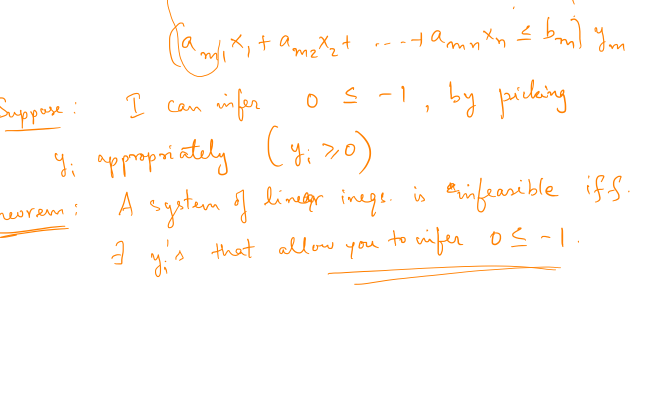 (a_{m1} x_1 + a_{m2} x_2 + ---- + a_{mn} x_n ≤ b_m) y_m
Suppose : I can infer 0 ≤ -1 , by picking
y_i appropriately (y_i ≥ 0)
heorem : A system of linear ineqs. is infeasible iff.
∃ y_i's that allow you to infer 0 ≤ -1 .